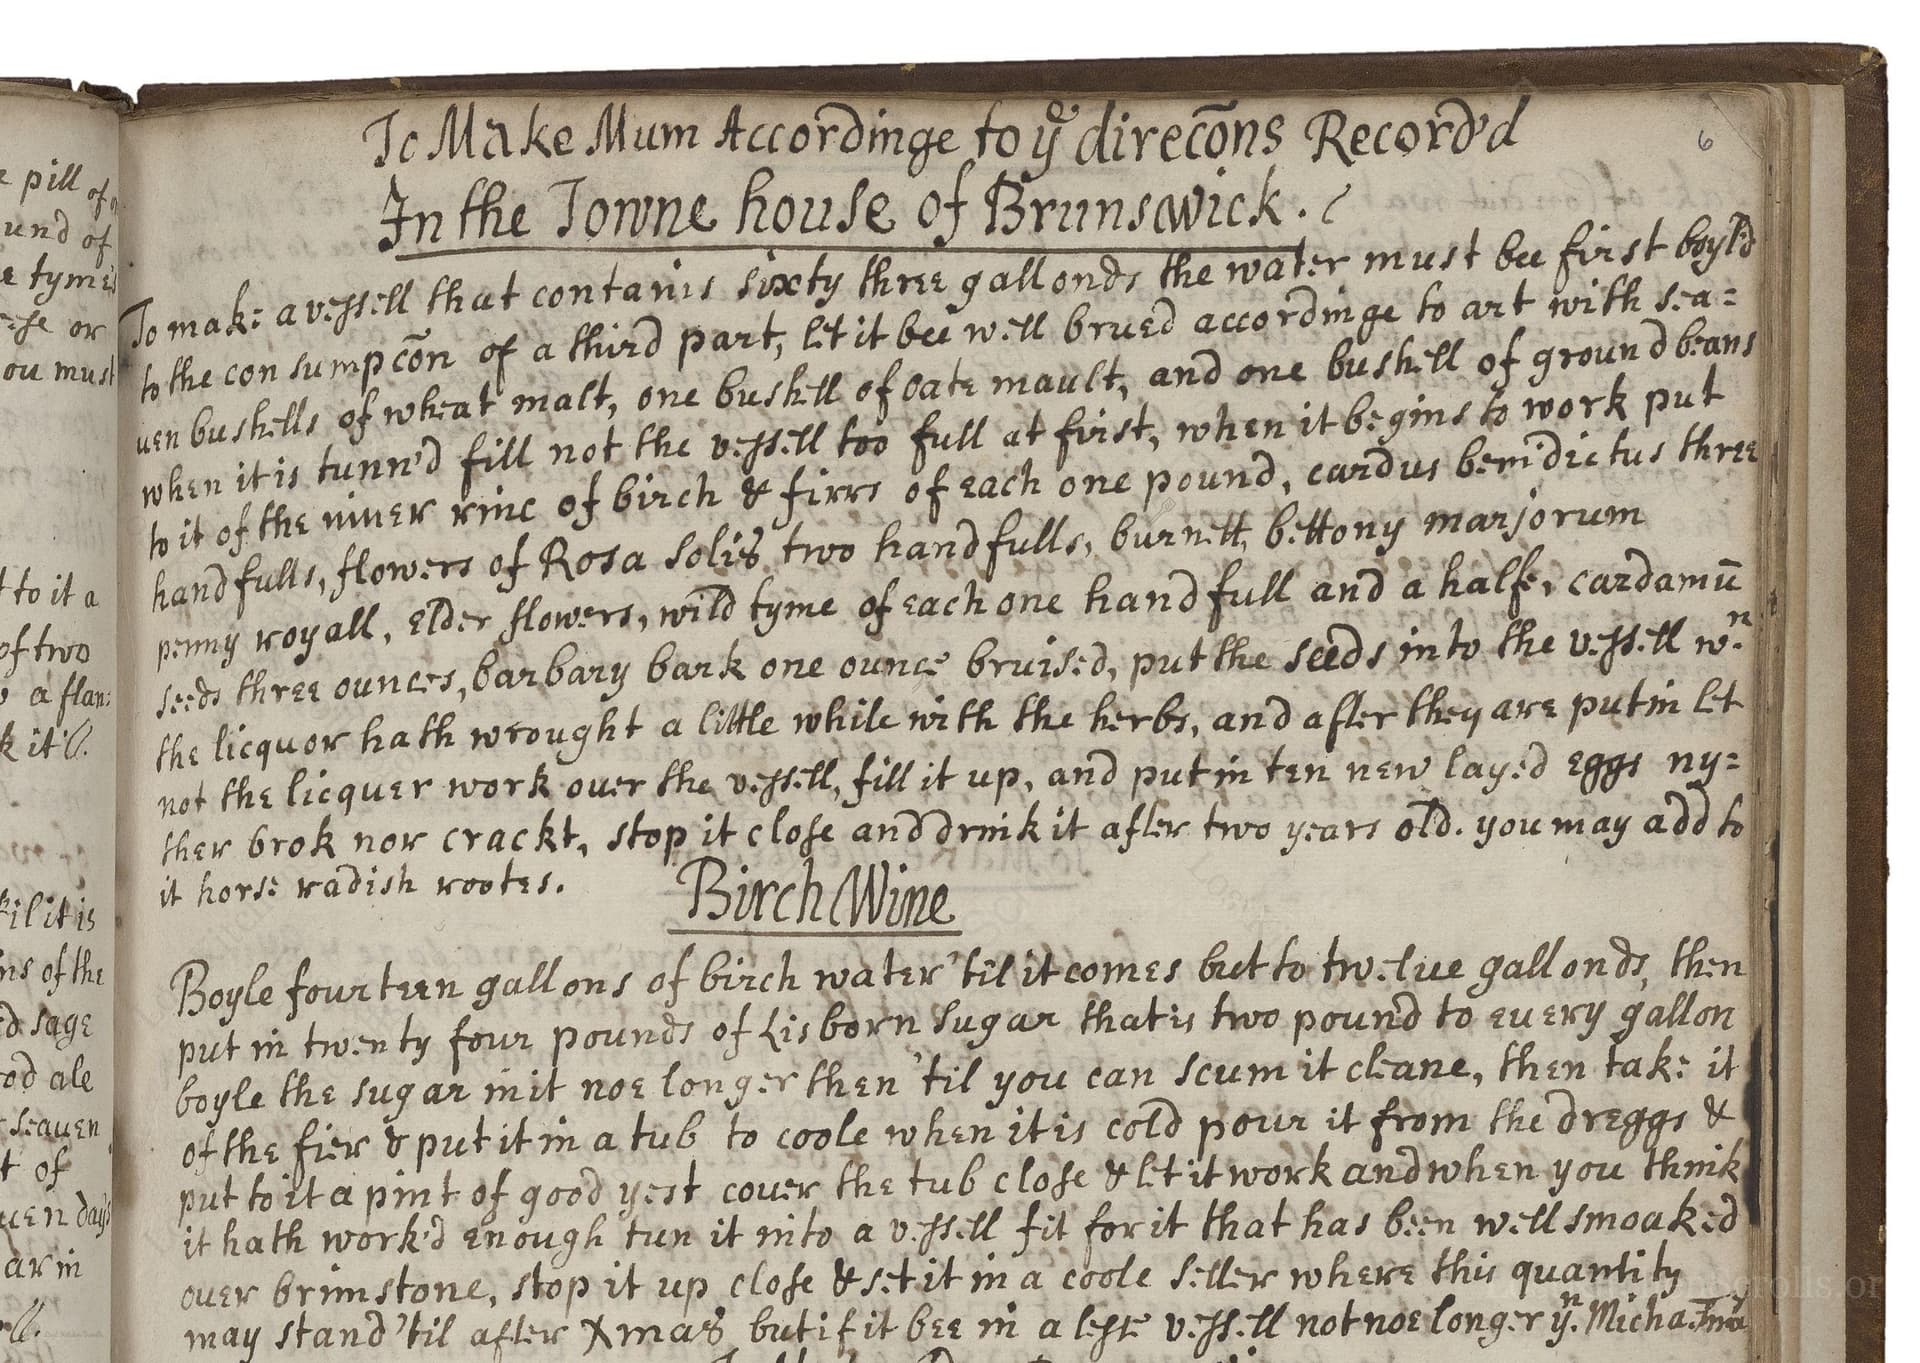 e pill of
und of
e tymes
or
ou must
t to it a
of two
a flan:
k it
il it is
ns of the
d sage
od ale
seauen
t of
uen days
ar in
6
To Make Mum Accordinge to yͤ direcõns Record'd
In the Towne house of Brunswick.
To make a vessell that contains sixty three gallonds the water must bee first boyl'd
to the consumpcõn of a third part, let it bee well brued accordinge to art with sea=
uen bushells of wheat malt, one bushell of oate mault, and one bushell of ground beans
when it is tunn'd fill not the vessell too full at first, when it begins to work put
to it of the inner rine of birch & firrs of each one pound, cardus benidictus three
handfulls, flowers of Rosa solis two handfulls, burnett, bettony marjorum
penny royall, elder flowers, wild tyme of each one handfull and a halfe, cardamū
seeds three ounces, barbary bark one ounce bruised, put the seeds into the vessell wⁿ.
the licquor hath wrought a little while with the herbs, and after they are put in let
not the licquer work over the vessell, fill it up, and put in ten new layed eggs ny=
ther brok nor crackt, stop it close and drink it after two years old. you may add to
it horse radish rootes.
Birch Wine
Boyle fourteen gallons of birch water 'til it comes but to twelue gallonds, then
put in twenty four pounds of Lisborn sugar that is two pound to euery gallon
boyle the sugar in it noe longer then 'til you can scum it cleane, then take it
of the fier & put it in a tub to coole when it is cold pour it from the dreggs &
put to it a pint of good yest couer the tub close & let it work and when you think
it hath work'd enough tun it into a vessell fit for it that has been well smoaked
ouer brimstone, stop it up close & set it in a coole seller where this quantity
may stand 'til after Xmas but if it bee in a lesse vessell not noe longer yⁿ. Micha: